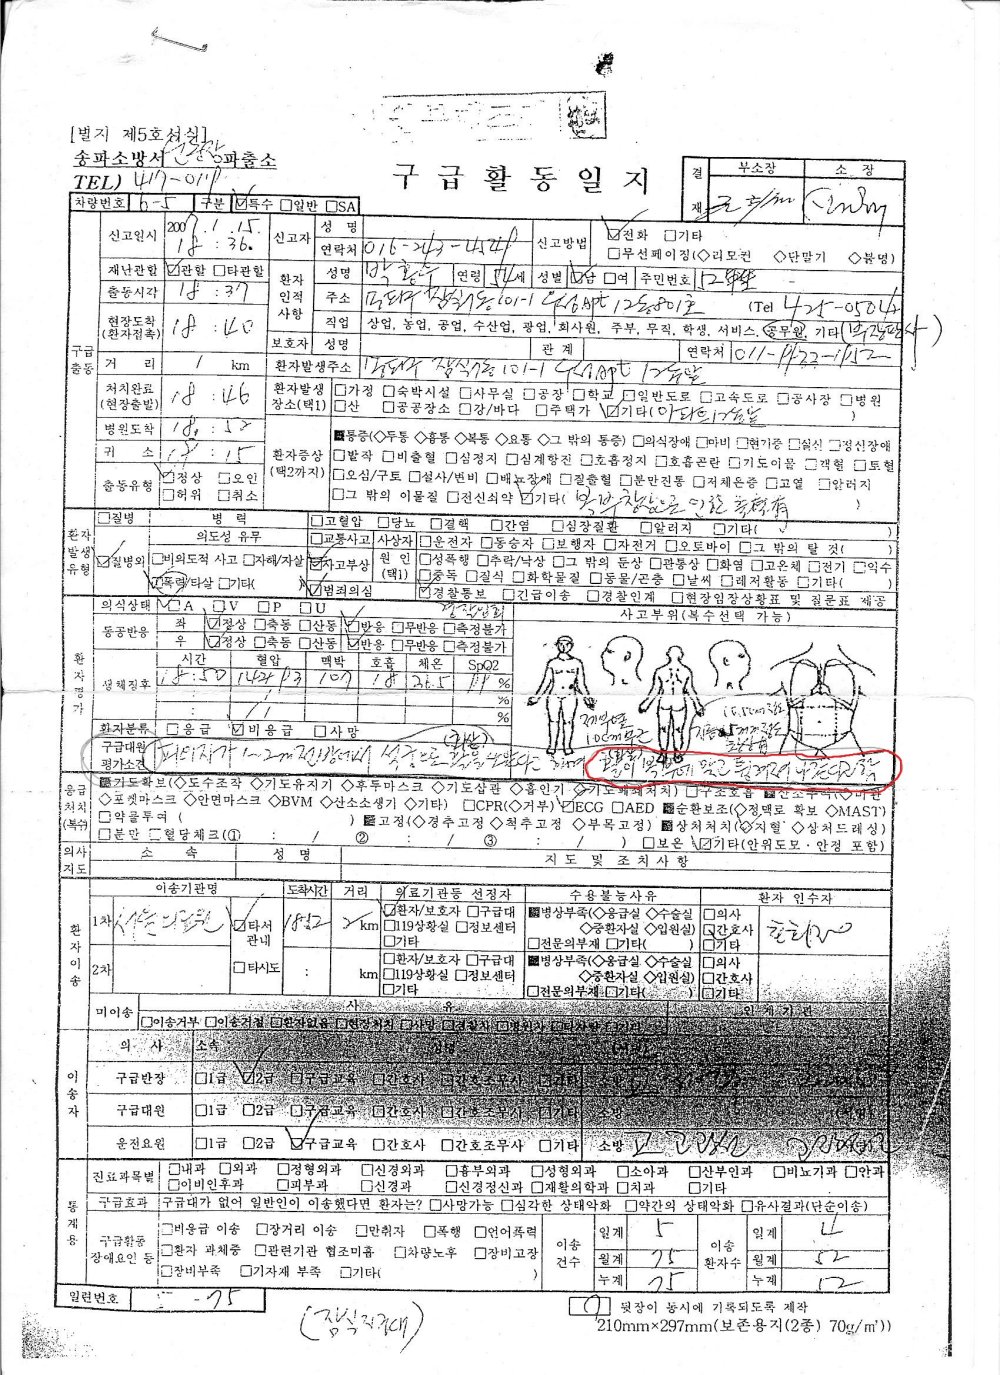 [별지 제5호서식]
송파소방서 파출소
구급활동일지
TEL) 417-0119
결재 부소장 소장
차량번호 6-5 구분 ☑특수 □일반 □SA
신고일시 2007. 1. 15. 18 : 36.
신고자 성명
연락처 016-243-4549
신고방법 ☑전화 □기타
□무선페이징(◇리모컨 ◇단말기 ◇불명)
재난관할 ☑관할 □타관할
환자인적사항 성명 박홍우 연령 54세 성별 ☑남 □여 주민번호 52
출동시각 18 : 37
주소 송파구 잠실동 101-1 우성Apt 12동 801호 (Tel 425-0504)
현장도착(환자접촉) 18 : 40
직업 상업, 농업, 공업, 수산업, 광업, 회사원, 주부, 무직, 학생, 서비스, 공무원, 기타(부장판사)
보호자 성명 관계 연락처 011-9933-1152
구급출동
거리 1 km
환자발생주소 송파구 잠실동 101-1 우성Apt 12동앞
처치완료(현장출발) 18 : 46
환자발생장소(택1) □가정 □숙박시설 □사무실 □공장 □학교 □일반도로 □고속도로 □공사장 □병원
□산 □공공장소 □강/바다 □주택가 ☑기타(아파트12동앞)
병원도착 18 : 52
귀소 19 : 15
환자증상(택2까지) ▩통증(◇두통 ◇흉통 ◇복통 ◇요통 ◇그 밖의 통증) □의식장애 □마비 □현기증 □실신 □정신장애
□발작 □비출혈 □심정지 □심계항진 □호흡정지 □호흡곤란 □기도이물 □객혈 □토혈
□오심/구토 □설사/변비 □배뇨장애 □질출혈 □분만진통 □저체온증 □고열 □알러지
□그 밖의 이물질 □전신쇠약 ☑기타(복부창상으로 인한 출혈有)
출동유형 ☑정상 □오인
□허위 □취소
환자발생유형
□질병 병력 □고혈압 □당뇨 □결핵 □간염 □심장질환 □알러지 □기타( )
☑질병외 의도성 유무 □교통사고 사상자 □운전자 □동승자 □보행자 □자전거 □오토바이 □그 밖의 탈 것( )
□비의도적 사고 □자해/자살 ☑사고부상 원인(택1) □성폭행 □추락/낙상 □그 밖의 둔상 □관통상 □화염 □고온체 □전기 □익수
☑폭력/타살 □기타( ) □중독 □질식 □화학물질 □동물/곤충 □날씨 □레저활동 □기타( )
☑범죄의심 ☑경찰통보 □긴급이송 □경찰인계 □현장임장상황표 및 질문표 제공
환자평가
의식상태 ☑A □V □P □U
사고부위(복수선택 가능)
동공반응 좌 ☑정상 □축동 □산동 ☑반응 □무반응 □측정불가
우 ☑정상 □축동 □산동 ☑반응 □무반응 □측정불가
생체징후 시간 혈압 맥박 호흡 체온 SpO2
18:50 107 18 36.5 99 %
%
%
환자분류 □응급 ☑비응급 □사망
구급대원 평가소견 피의자가 1~2m전방에서 석궁으로 활을 쏘았다고 하며
활이 복부에 맞고 튕겨져 나갔다고 함
응급처치(복수)
▩기도확보(◇도수조작 ◇기도유지기 ◇후두마스크 ◇기도삽관 ◇흡인기 ◇기도폐쇄처치) □구조호흡 ▩산소투여(◇비관
◇포켓마스크 ◇안면마스크 ◇BVM ◇산소소생기 ◇기타) □CPR(◇거부) ☑ECG □AED ▩순환보조(◇정맥로 확보 ◇MAST)
□약물투여( ) ▩고정(◇경추고정 ◇척추고정 ◇부목고정) ▩상처처치(◇지혈 ◇상처드레싱)
□분만 □혈당체크(① : / ② : / ③ : / ) □보온 ☑기타(안위도모·안정 포함)
의사지도 소속 성명 지도 및 조치사항
환자이송
이송기관명 도착시간 거리 의료기관등 선정자 수용불능사유 환자 인수자
1차 서울의료원 ☑타서관내 18:52 2km ☑환자/보호자 □구급대 ▩병상부족(◇응급실 ◇수술실 □의사
□119상황실 □정보센터 ◇중환자실 ◇입원실) ☑간호사
□기타 □전문의부재 □기타( ) □기타
2차 □타시도 : km □환자/보호자 □구급대 ▩병상부족(◇응급실 ◇수술실 □의사
□119상황실 □정보센터 ◇중환자실 ◇입원실) □간호사
□기타 □전문의부재 □기타( ) □기타
미이송 사유 인계기관
□이송거부 □이송거절 □환자없음 □현장처치 □사망 □경찰차 □병원차 □타차량 □기타
이송자
의사 소속 성명
구급반장 □1급 ☑2급 □구급교육 □간호사 □간호조무사 □기타
구급대원 □1급 □2급 □구급교육 □간호사 □간호조무사 □기타 소방
운전요원 □1급 □2급 ☑구급교육 □간호사 □간호조무사 □기타 소방
통계용
진료과목별 □내과 □외과 □정형외과 □신경외과 □흉부외과 □성형외과 □소아과 □산부인과 □비뇨기과 □안과
□이비인후과 □피부과 □신경과 □신경정신과 □재활의학과 □치과 □기타
구급효과 구급대가 없어 일반인이 이송했다면 환자는? □사망가능 □심각한 상태악화 □약간의 상태악화 □유사결과(단순이송)
구급활동 장애요인 등 □비응급 이송 □장거리 이송 □만취자 □폭행 □언어폭력
□환자 과체중 □관련기관 협조미흡 □차량노후 □장비고장
□장비부족 □기자재 부족 □기타( )
이송건수 일계 5 월계 75 누계 75
이송환자수 일계 4 월계 52 누계 52
일련번호 -75
(잠실구급대)
뒷장이 동시에 기록되도록 제작
210mm×297mm(보존용지(2종) 70g/㎡)